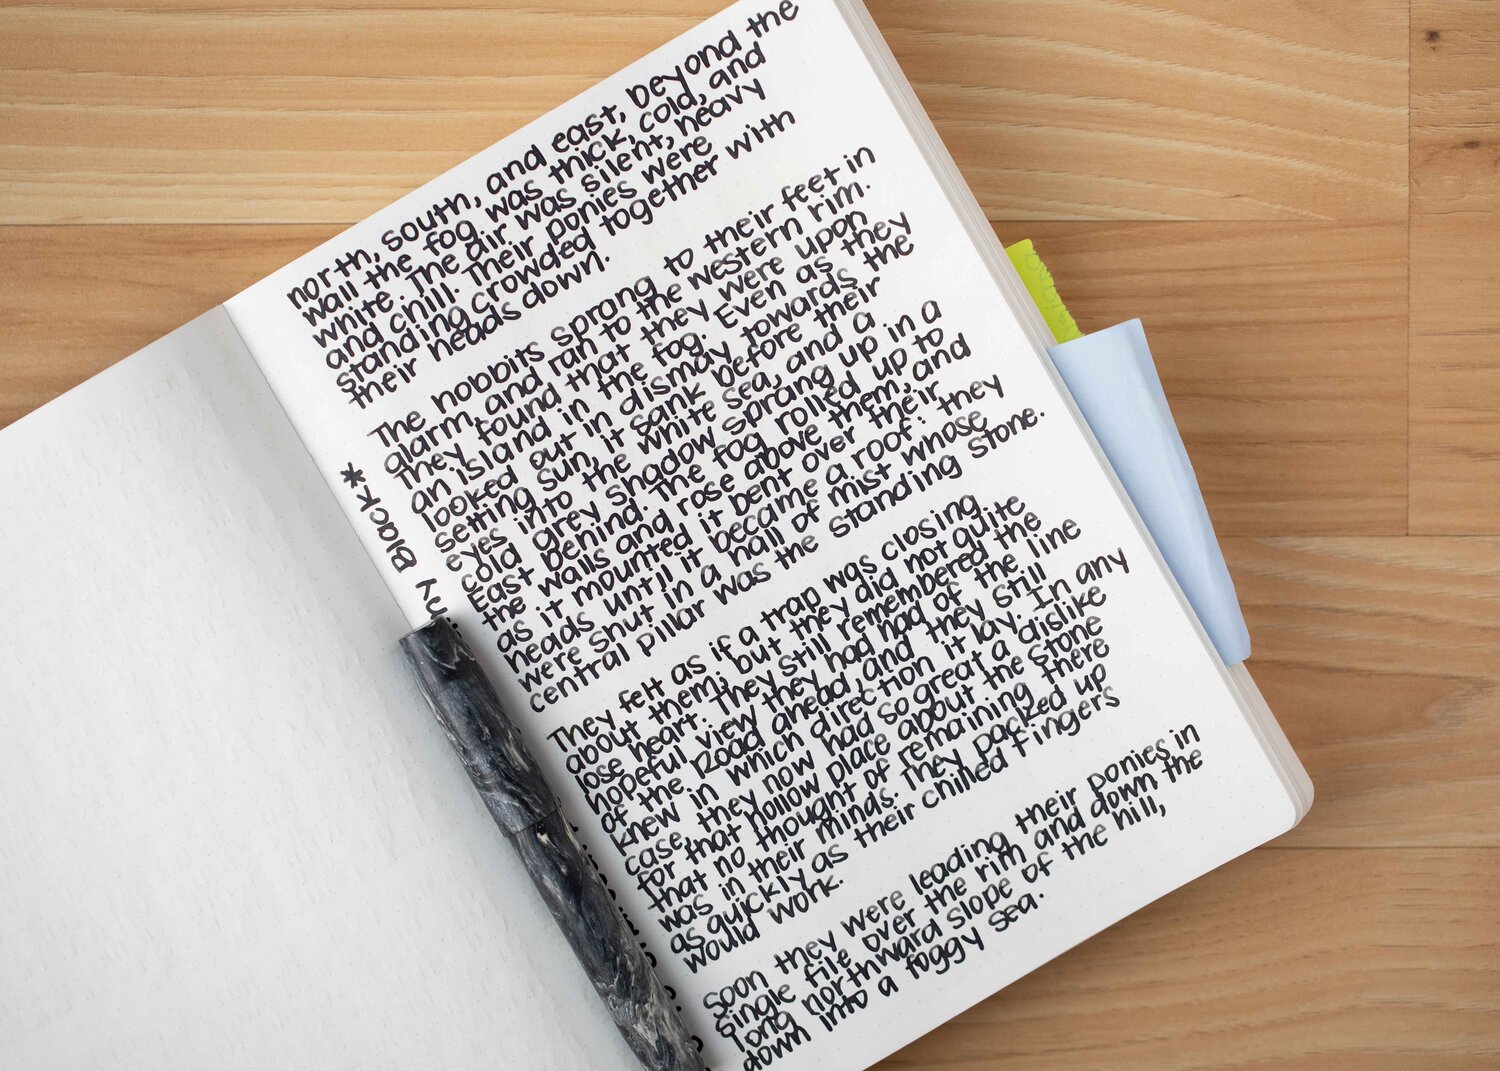 north, south, and east, beyond the
wall the fog was thick, cold, and
white. The air was silent, heavy
and chill. Their ponies were
standing crowded together with
their heads down.
The hobbits sprang to their feet in
alarm, and ran to the western rim.
They found that they were upon
an island in the fog. Even as they
looked out in dismay towards the
setting sun, it sank before their
eyes into the white sea, and a
cold grey shadow sprang up in a
East behind. The fog rolled up to
the walls and rose above them, and
as it mounted it bent over their
heads until it became a roof: they
were shut in a hall of mist whose
central pillar was the standing stone.
They felt as if a trap was closing
about them; but they did not quite
lose heart. They still remembered the
hopeful view they had had of the line
of the Road ahead, and they still
knew in which direction it lay. In any
case, they now had so great a dislike
for that hollow place about the stone
that no thought of remaining there
was in their minds. They packed up
as quickly as their chilled fingers
would work.
Soon they were leading their ponies in
single file over the rim and down the
long northward slope of the hill,
down into a foggy sea.
* Black